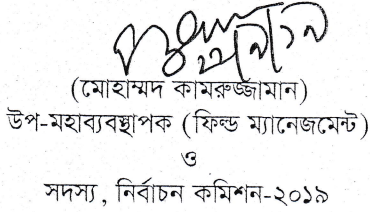 (মোহাম্মদ কামরুজ্জামান)
উপ-মহাব্যবস্থাপক (ফিল্ড ম্যানেজমেন্ট)
ও
সদস্য, নির্বাচন কমিশন-২০১৯